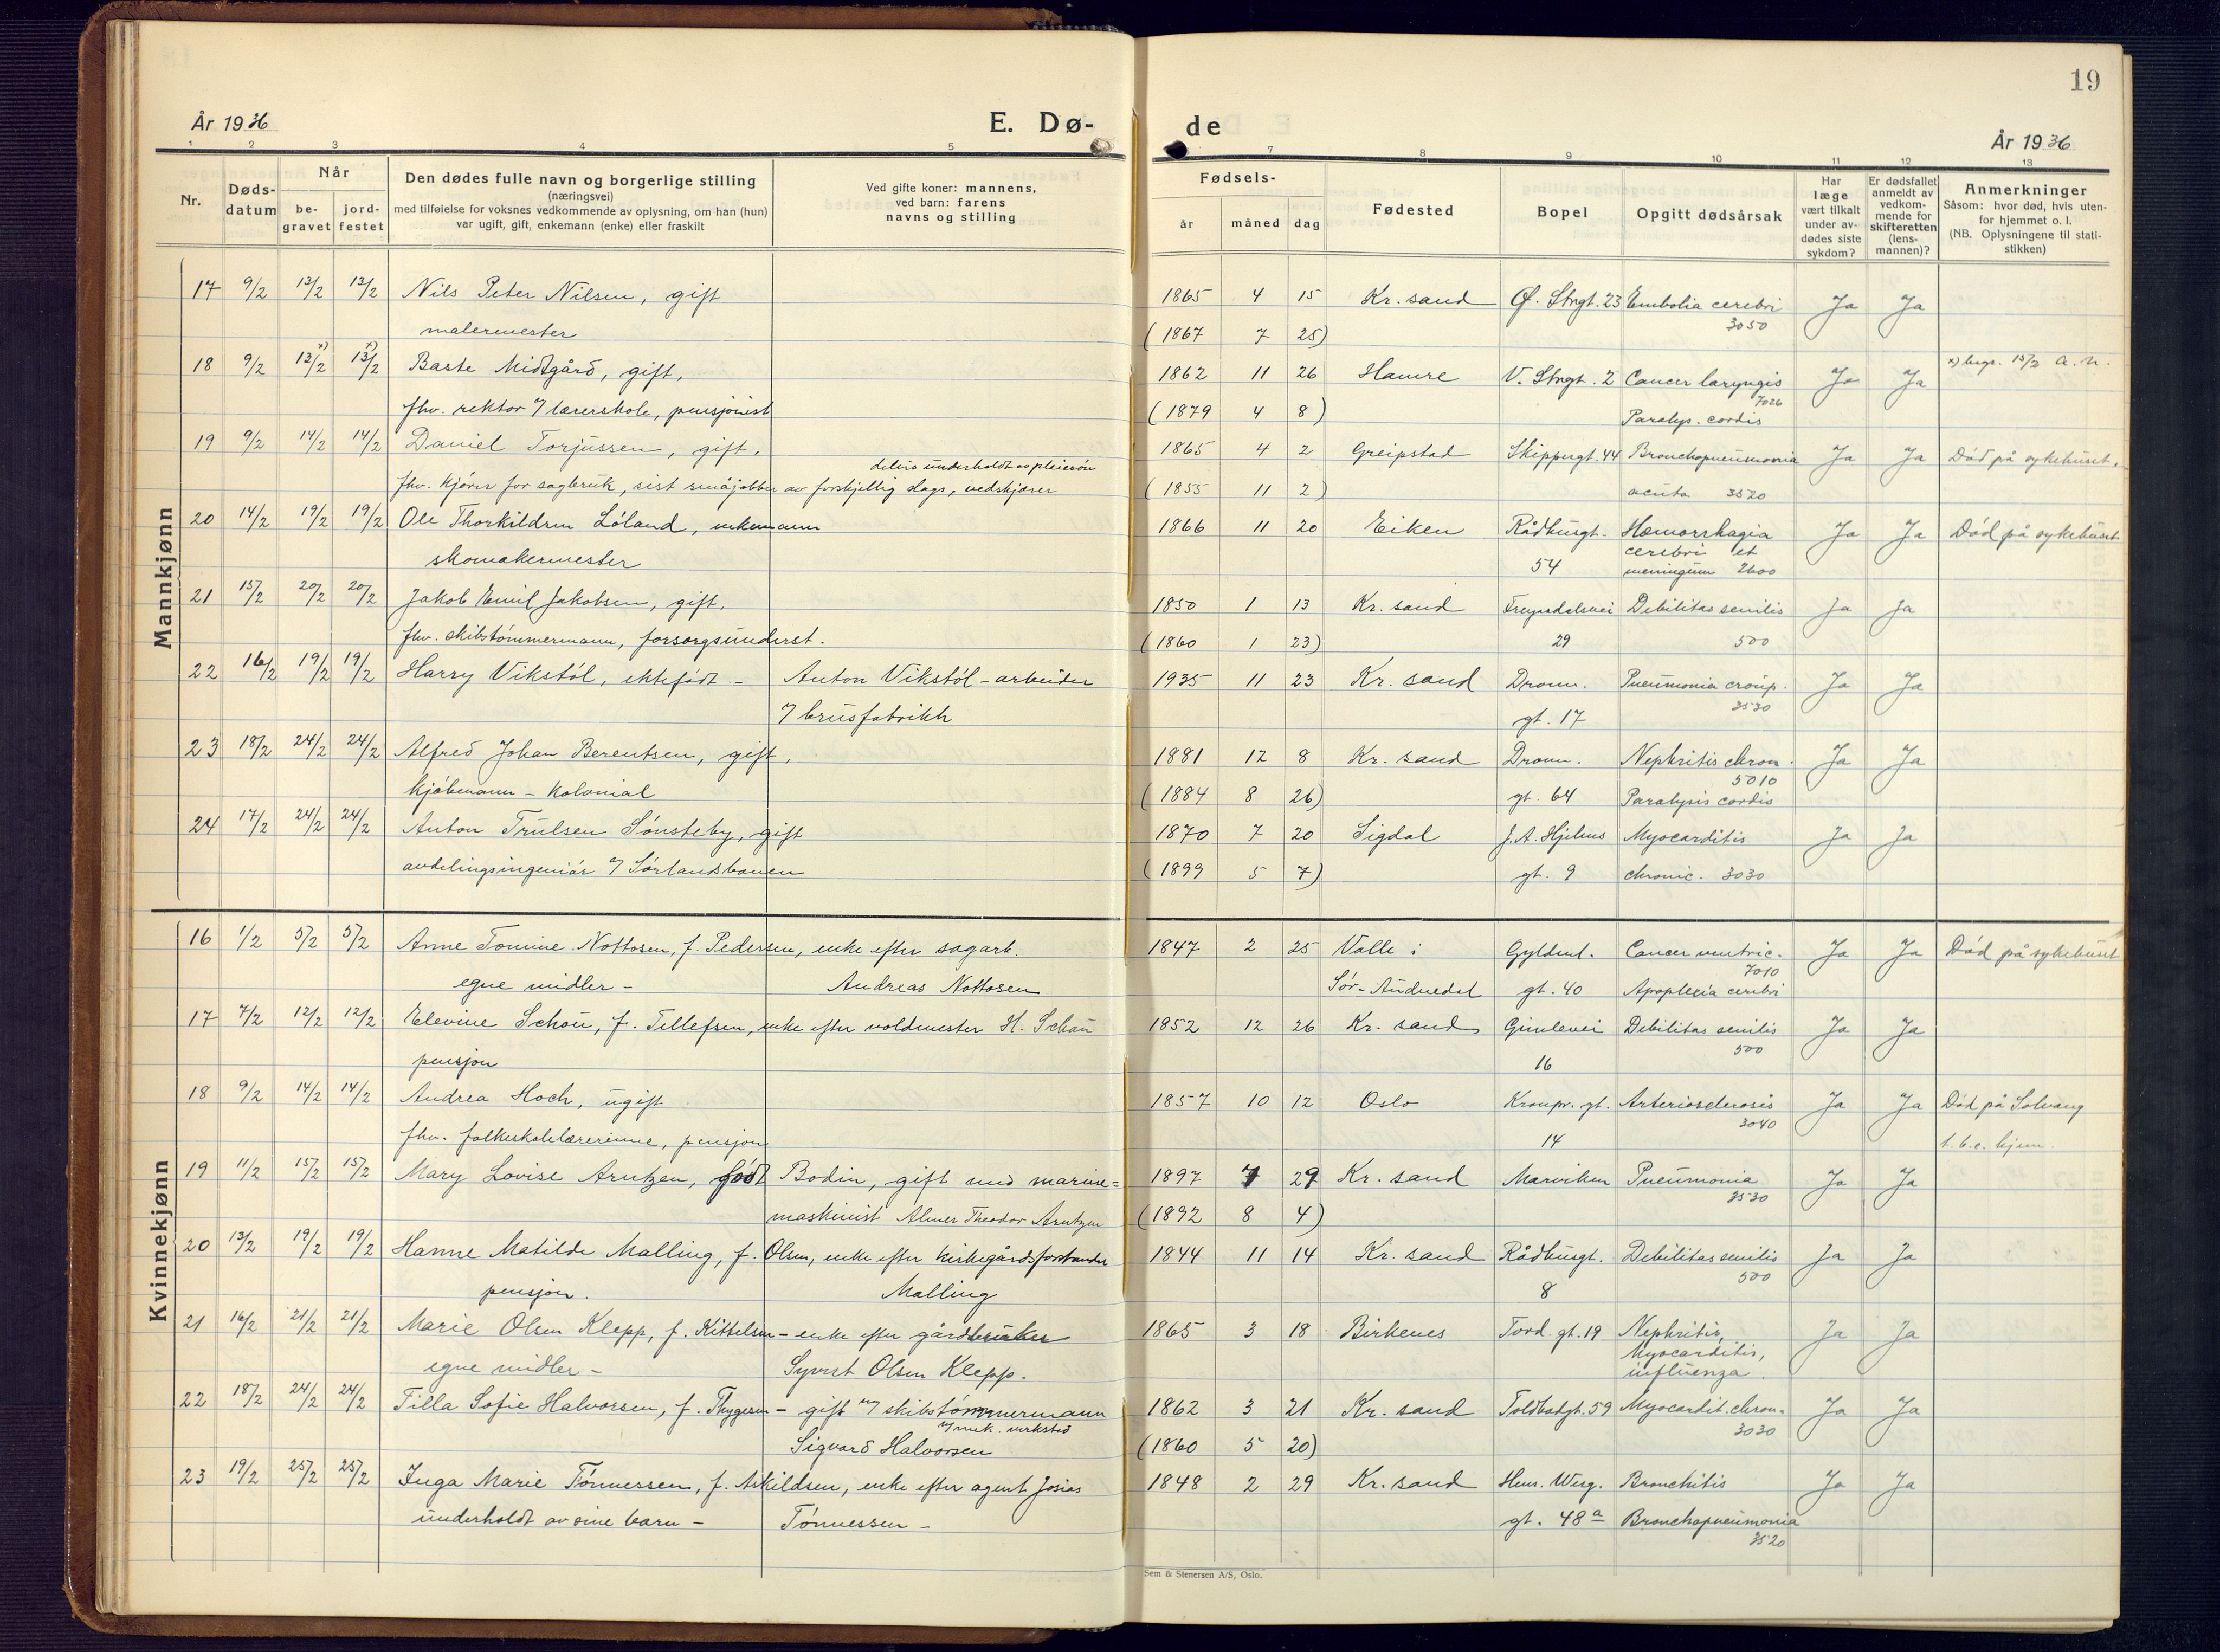 19
År 1936
E. Dø-
de
År 1936
1 2 3 4 5 7 8 9 10 11 12 13
Nr.
Døds-
datum
Når
be-
gravet
jord-
festet
Den dødes fulle navn og borgerlige stilling
(næringsvei)
med tilføielse for voksnes vedkommende av oplysning, om han (hun)
var ugift, gift, enkemann (enke) eller fraskilt
Ved gifte koner: mannens,
ved barn: farens
navns og stilling
Fødsels-
år måned dag
Fødested
Bopel
Opgitt dødsårsak
Har
læge
vært tilkalt
under av-
dødes siste
sykdom?
Er dødsfallet
anmeldt av
vedkom-
mende for
skifteretten
(lens-
mannen)?
Anmerkninger
Såsom: hvor død, hvis uten-
for hjemmet o. l.
(NB. Oplysningene til stati-
stikken)
Mannkjønn
17 9/2 13/2 13/2 Nils Peter Nilsen, gift 1865 4 15 Kr. sand Ø. Strgt. 23 Embolia cerebri Ja Ja
malermester (1867 7 25) 3050
18 9/2 13/2 x) 13/2 x) Baste Midtgård, gift, 1862 11 26 Hamre V. Strgt. 2 Cancer laryngis 7026 Ja Ja x) begr. 15/2 a. n.
fhv. rektor v/ lærerskole, pensjonist (1879 4 8) Paralys. cordis
19 9/2 14/2 14/2 Daniel Torjussen, gift. 1865 4 2 Greipstad Skippergt. 44 Bronchopneumonia Ja Ja Død på sykehuset.
delvis underholdt av pleiesøn
fhv. kjører for sagbruk, sist småjobber av forskjellig slags, vedskjærer (1855 11 2) acuta 3520
20 14/2 19/2 19/2 Ole Thorkildsen Løland, enkemann 1866 11 20 Eiken Rådhusgt. Hæmorrhagia Ja Ja Død på sykehuset
skomakermester 54 cerebri et
meningeum 2600
21 15/2 20/2 20/2 Jakob Emil Jakobsen, gift, 1850 1 13 Kr. sand Debilitas senilis Ja Ja
fhv. skibstømmermann, forsorgsunderst. (1860 1 23) 29 500
22 16/2 19/2 19/2 Harry Vikstøl, ektefødt - Anton Vikstøl - arbeider 1935 11 23 Kr. sand Dronn. Pneumonia croup. Ja Ja
v/ brusfabrikk gt. 17 3530
23 18/2 24/2 24/2 Alfred Johan Berentsen, gift, 1881 12 8 Kr. sand Dronn. Nephritis chron. Ja Ja
kjøbmann - kolonial (1884 8 26) gt. 64 5010 Paralysis cordis
24 17/2 24/2 24/2 Anton Trulsen Sønsteby, gift 1870 7 20 Sigdal J. A. Hjelms Myocarditis Ja Ja
avdelingsingeniør v/ Sørlandsbanen (1899 5 7) gt. 9 chronic. 3030
Kvinnekjønn
16 1/2 5/2 5/2 Anne Tomine Nottosen, f. Pedersen, enke efter sagarb. 1847 2 25 Valle i Gyldenl. Cancer ventric. Ja Ja Død på sykehuset
egne midler - Andreas Nottosen Sør-Audnedal gt. 40 7010 Apoplexia cerebri
17 7/2 12/2 12/2 Elevine Schou, f. Tellefsen, enke efter voldmester H. Schou 1852 12 26 Kr. sand Gimlevei Debilitas senilis Ja Ja
pensjon 16 500
18 9/2 14/2 14/2 Andrea Hoch, ugift 1857 10 12 Oslo Kronpr. gt. Arteriosclerosis Ja Ja Død på Solvang
fhv. folkeskolelærerinne, pensjon 14 3040 hjem.
19 11/2 15/2 15/2 Mary Lovise Arntzen, født Bodin, gift med marine= 1897 7 29 Kr. sand Marviken Pneumonia Ja Ja
maskinist Almer Theodor Arntzen (1892 8 4) 3530
20 13/2 19/2 19/2 Hanne Matilde Malling, f. Olsen, enke efter kirkegårdsforstander 1844 11 14 Kr. sand Rådhusgt. Debilitas senilis Ja Ja
pensjon. Malling 8 500
21 16/2 21/2 21/2 Marie Olsen Klepp, f. Kittelsen - enke efter gårdbruker 1865 3 18 Birkenes Tord. gt. 19 Nephritis, Ja Ja
egne midler - Syvert Olsen Klepp. Myocarditis,
influenza
22 18/2 24/2 24/2 Tilla Sofie Halvorsen, f. Thygesen - gift m/ skibstømmermann 1862 3 21 Kr. sand Toldbodgt. 59 Myocardit. chron. Ja Ja
v/ mek. verksted
Sigvard Halvorsen (1860 5 20) 3030
23 19/2 25/2 25/2 Inga Marie Tønnessen, f. Askildsen, enke efter agent Josias 1848 2 29 Kr. sand Henr. Werg. Bronchitis Ja Ja
underholdt av sine barn - Tønnessen - gt. 48a Bronchopneumonia
3520
Sem & Stenersen A/S, Oslo.